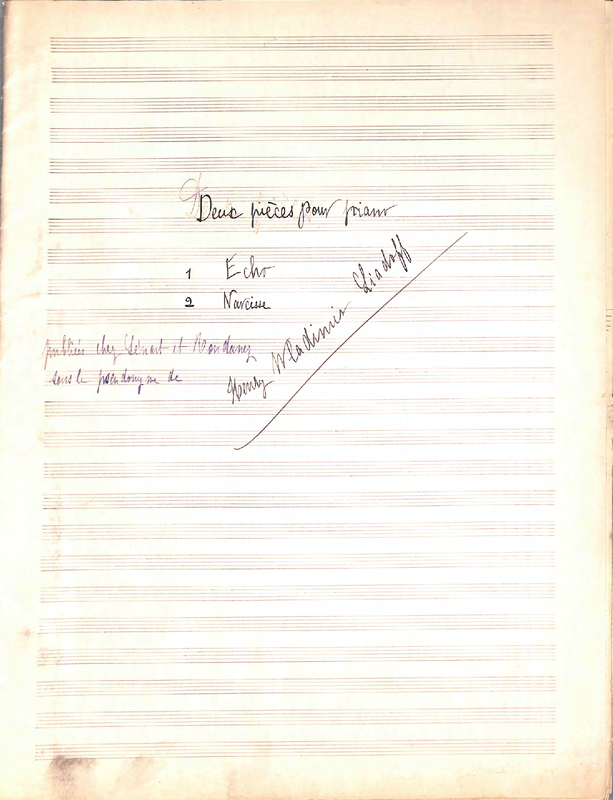 Deux pièces pour piano
1 Echo
2 Narcisse
publiées chez Sénart et Roudanez
sous le pseudonyme de
Henry Wladimir Liadoff